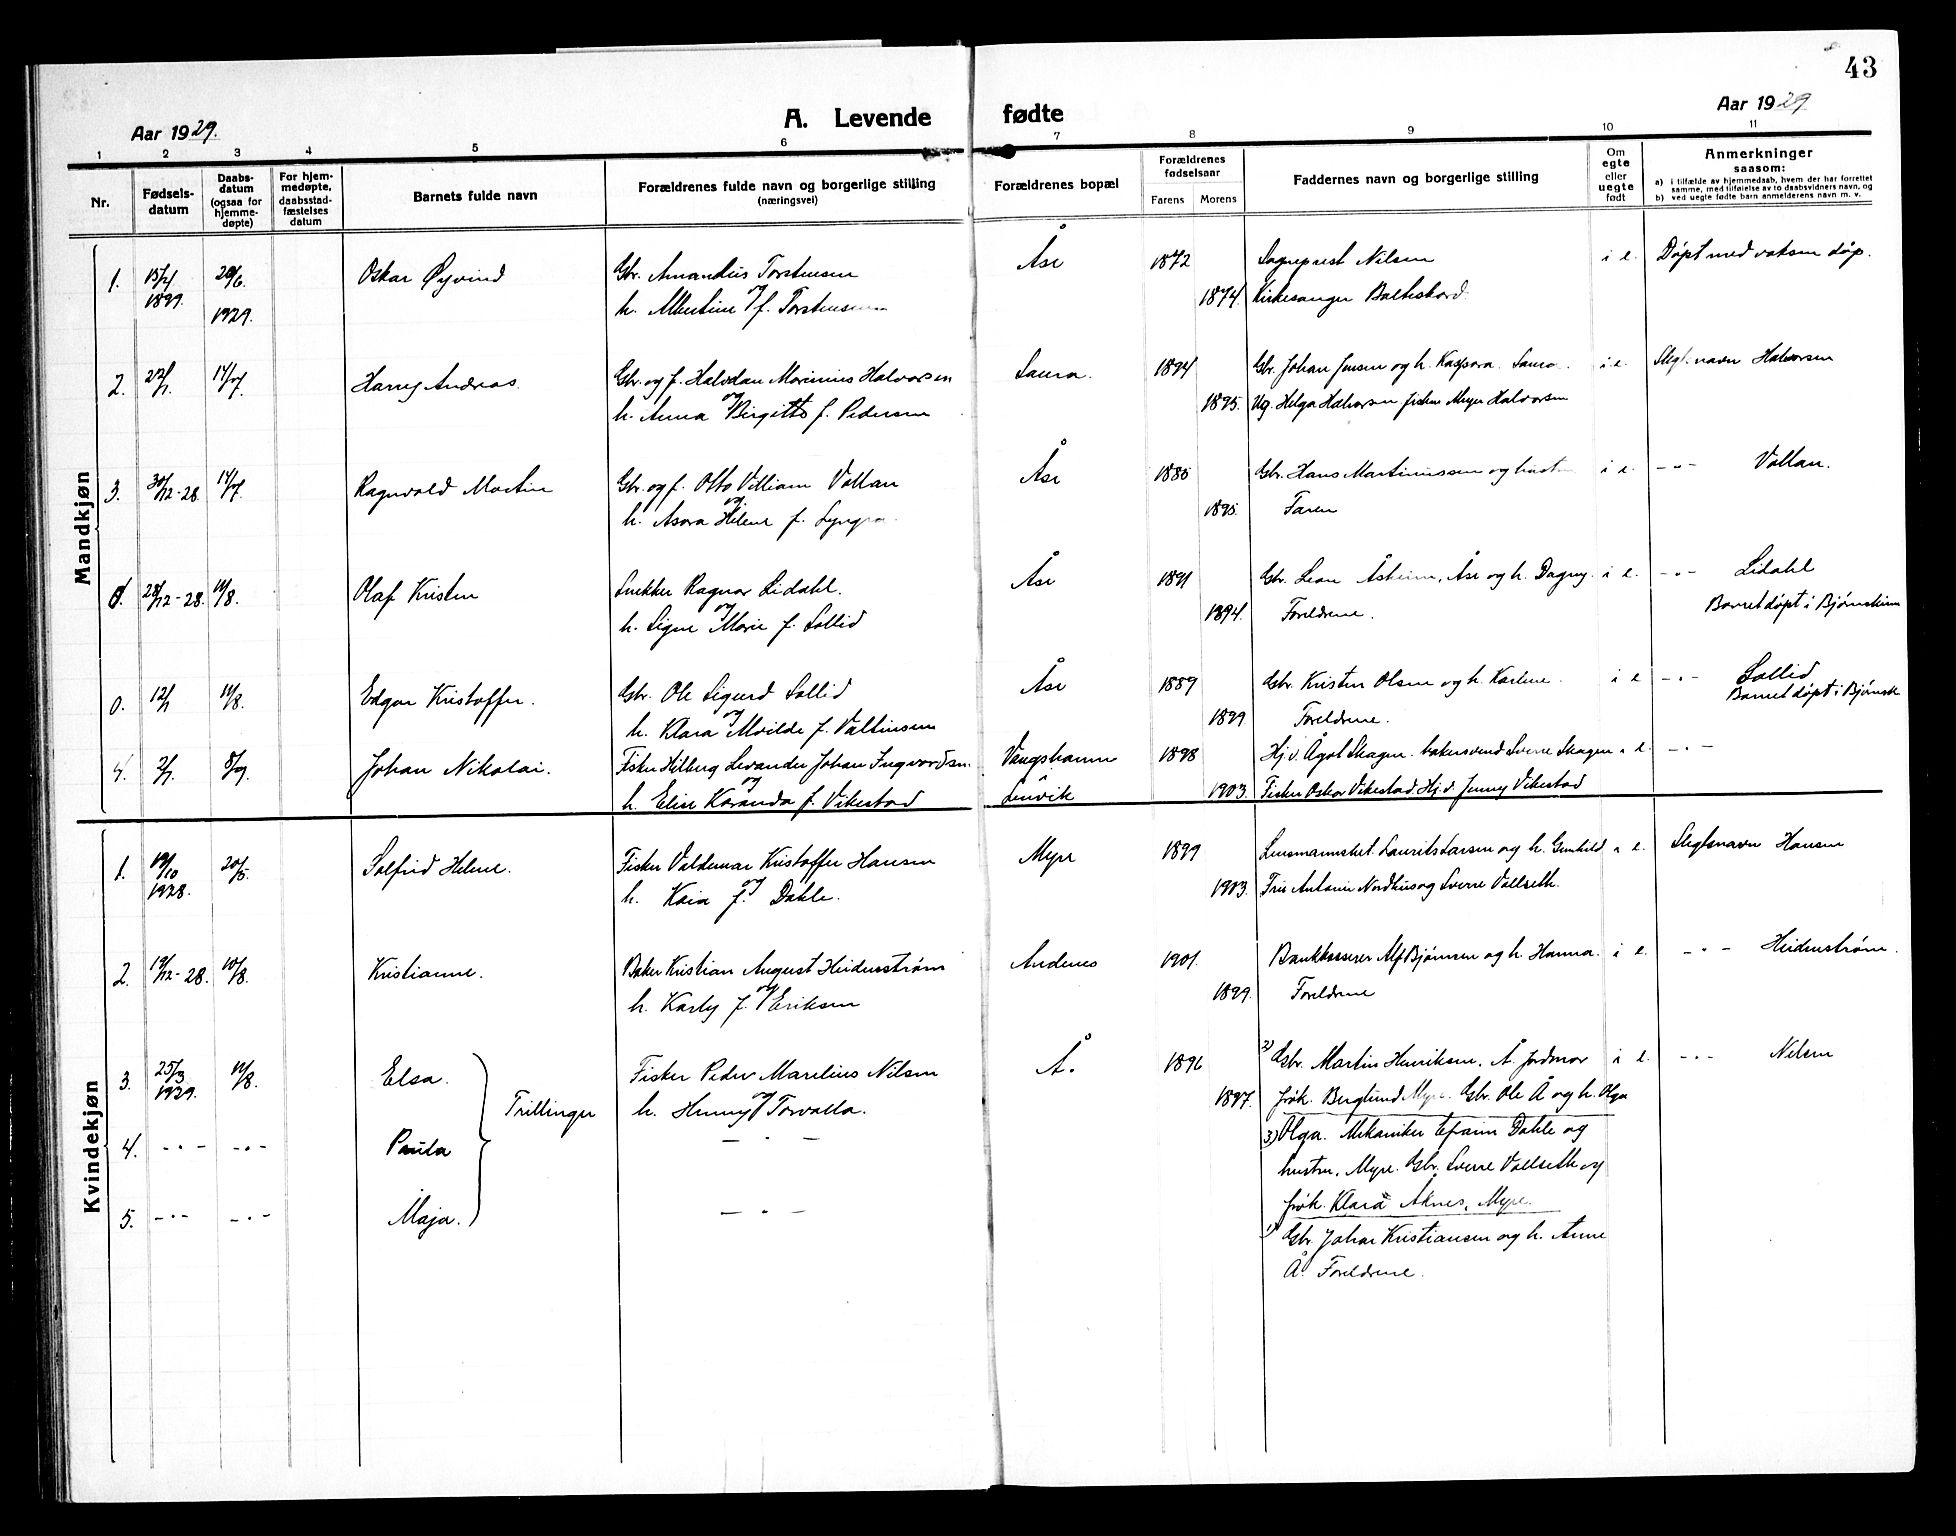 43
Aar 1929.
A. Levende fødte
Aar 1929
1 2 3 4 5 6 7 8 9 10 11
Nr.
Fødsels-
datum
Daabs-
datum
(ogsaa for
hjemme-
døpte)
For hjem-
medøpte,
daabsstad-
fæstelses
datum
Barnets fulde navn
Forældrenes fulde navn og borgerlige stilling
(næringsvei)
Forældrenes bopæl
Forældrenes
fødselsaar
Farens Morens
Faddernes navn og borgerlige stilling
Om
egte
eller
uegte
født
Anmerkninger
saasom:
a) i tilfælde av hjemmedaab, hvem der har forrettet
samme, med tilføielse av to daabsvidners navn, og
b) ved uegte fødte barn anmelderens navn m. v.
Mandkjøn
1. 15/4 20/6. Oskar Øyvind Gbr. Amandus Torstensen Åse 1872 Sogneprest Nilsen i e. Døpt med voksen dåp.
1899. 1929. og
h. Albertine f. Torstensen 1874. Kirkesanger Balteskard.
2. 22/1. 14/7. Harry Andreas. Gbr. og f. Halvdan Marinius Halvorsen Saura. 1894 Gbr. Johan Jensen og h. Kaspara. Saura. i e. Slegt.navn Halvorsen
og
h. Anna Birgitte f. Pedersen 1895. Ug. Helga Halvorsen fisker Meyer Halvorsen
3. 30/12-28. 14/7. Ragnvald Martin Gbr. og f. Otto Villiam Vollan Åse 1885 Gbr. Hans Martinussen og hustru i e. -"- Vollan.
og.
h. Asora Helene f. Lyngra. 1895. Faren
0. 28/12-28. 11/8. Olaf Kristen Snekker Ragnar Lidahl. Åse 1891 Gbr. Leon Åsheim, Åse og h. Dagny. i e. -"- Lidahl
og Barnet døpt i Bjørnskinn
h. Signe Marie f. Sollid 1894. Foreldrene.
0. 12/1 11/8. Edgar Kristoffer. Gbr. Ole Sigurd Sollid Åse 1889 Gbr. Kristen Olsen og h. Karlene. i e -"- Sollid
og Barnet døpt i Bjørnsk
h. Klara Moilde f. Valtinsen 1899. Foreldrene.
4. 2/7. 8/9. Johan Nikolai. Fisker Hilberg Levander Johan Ingvardsen. Vangshamn 1898 Hj.v. Ågot Skagen. bakersvend Sverre Skagen " e. -"-
og
h. Elise Karanda f. Vikestad Lenvik 1903. Fisker Oskar Vikestad. Hj.v. Jenny Vikestad
Kvindekjøn
1. 19/10 20/5. Solfrid Helene. Fisker Valdemar Kristoffer Hansen Myre 1899 Lensmannsbet. Laurits Larsen og h. Gunhild " e. Slegtsnavn Hansen
1928. og
h. Kaia f. Dahle. 1903. Frk. Antonie Nordhus og Sverre Vollseth.
2. 19/12-28. 10/8. Kristianne. Baker Kristian August Heidenstrøm Andenes 1901. Bankkasserer Alf Bjørnsen og h. Hanna. i e. -"- Heidenstrøm.
og
h. Karly f. Eriksen 1899. Foreldrene
3. 25/3 11/8. Elsa. Fisker Peder Marelius Nilsen Å. 1896 2) Gbr. Martin Henriksen, Å. Jordmor i e. -"- Nilsen
1929. og
Trillinger h. Henny f. Torvalla. 1897. frøk. Berglund Myre. Gbr. Ole Å og h. Olga
4. -"- -"- Paula -"- 3) Olga. Mekaniker Efraim Dahle og
hustru, Myre. Gbr. Sverre Vollseth og
5. -"- -"- Maja. -"- frøk. Klara Åknes, Myre.
1) Gbr. Johan Kristiansen og h. Anne
Å. Foreldrene.